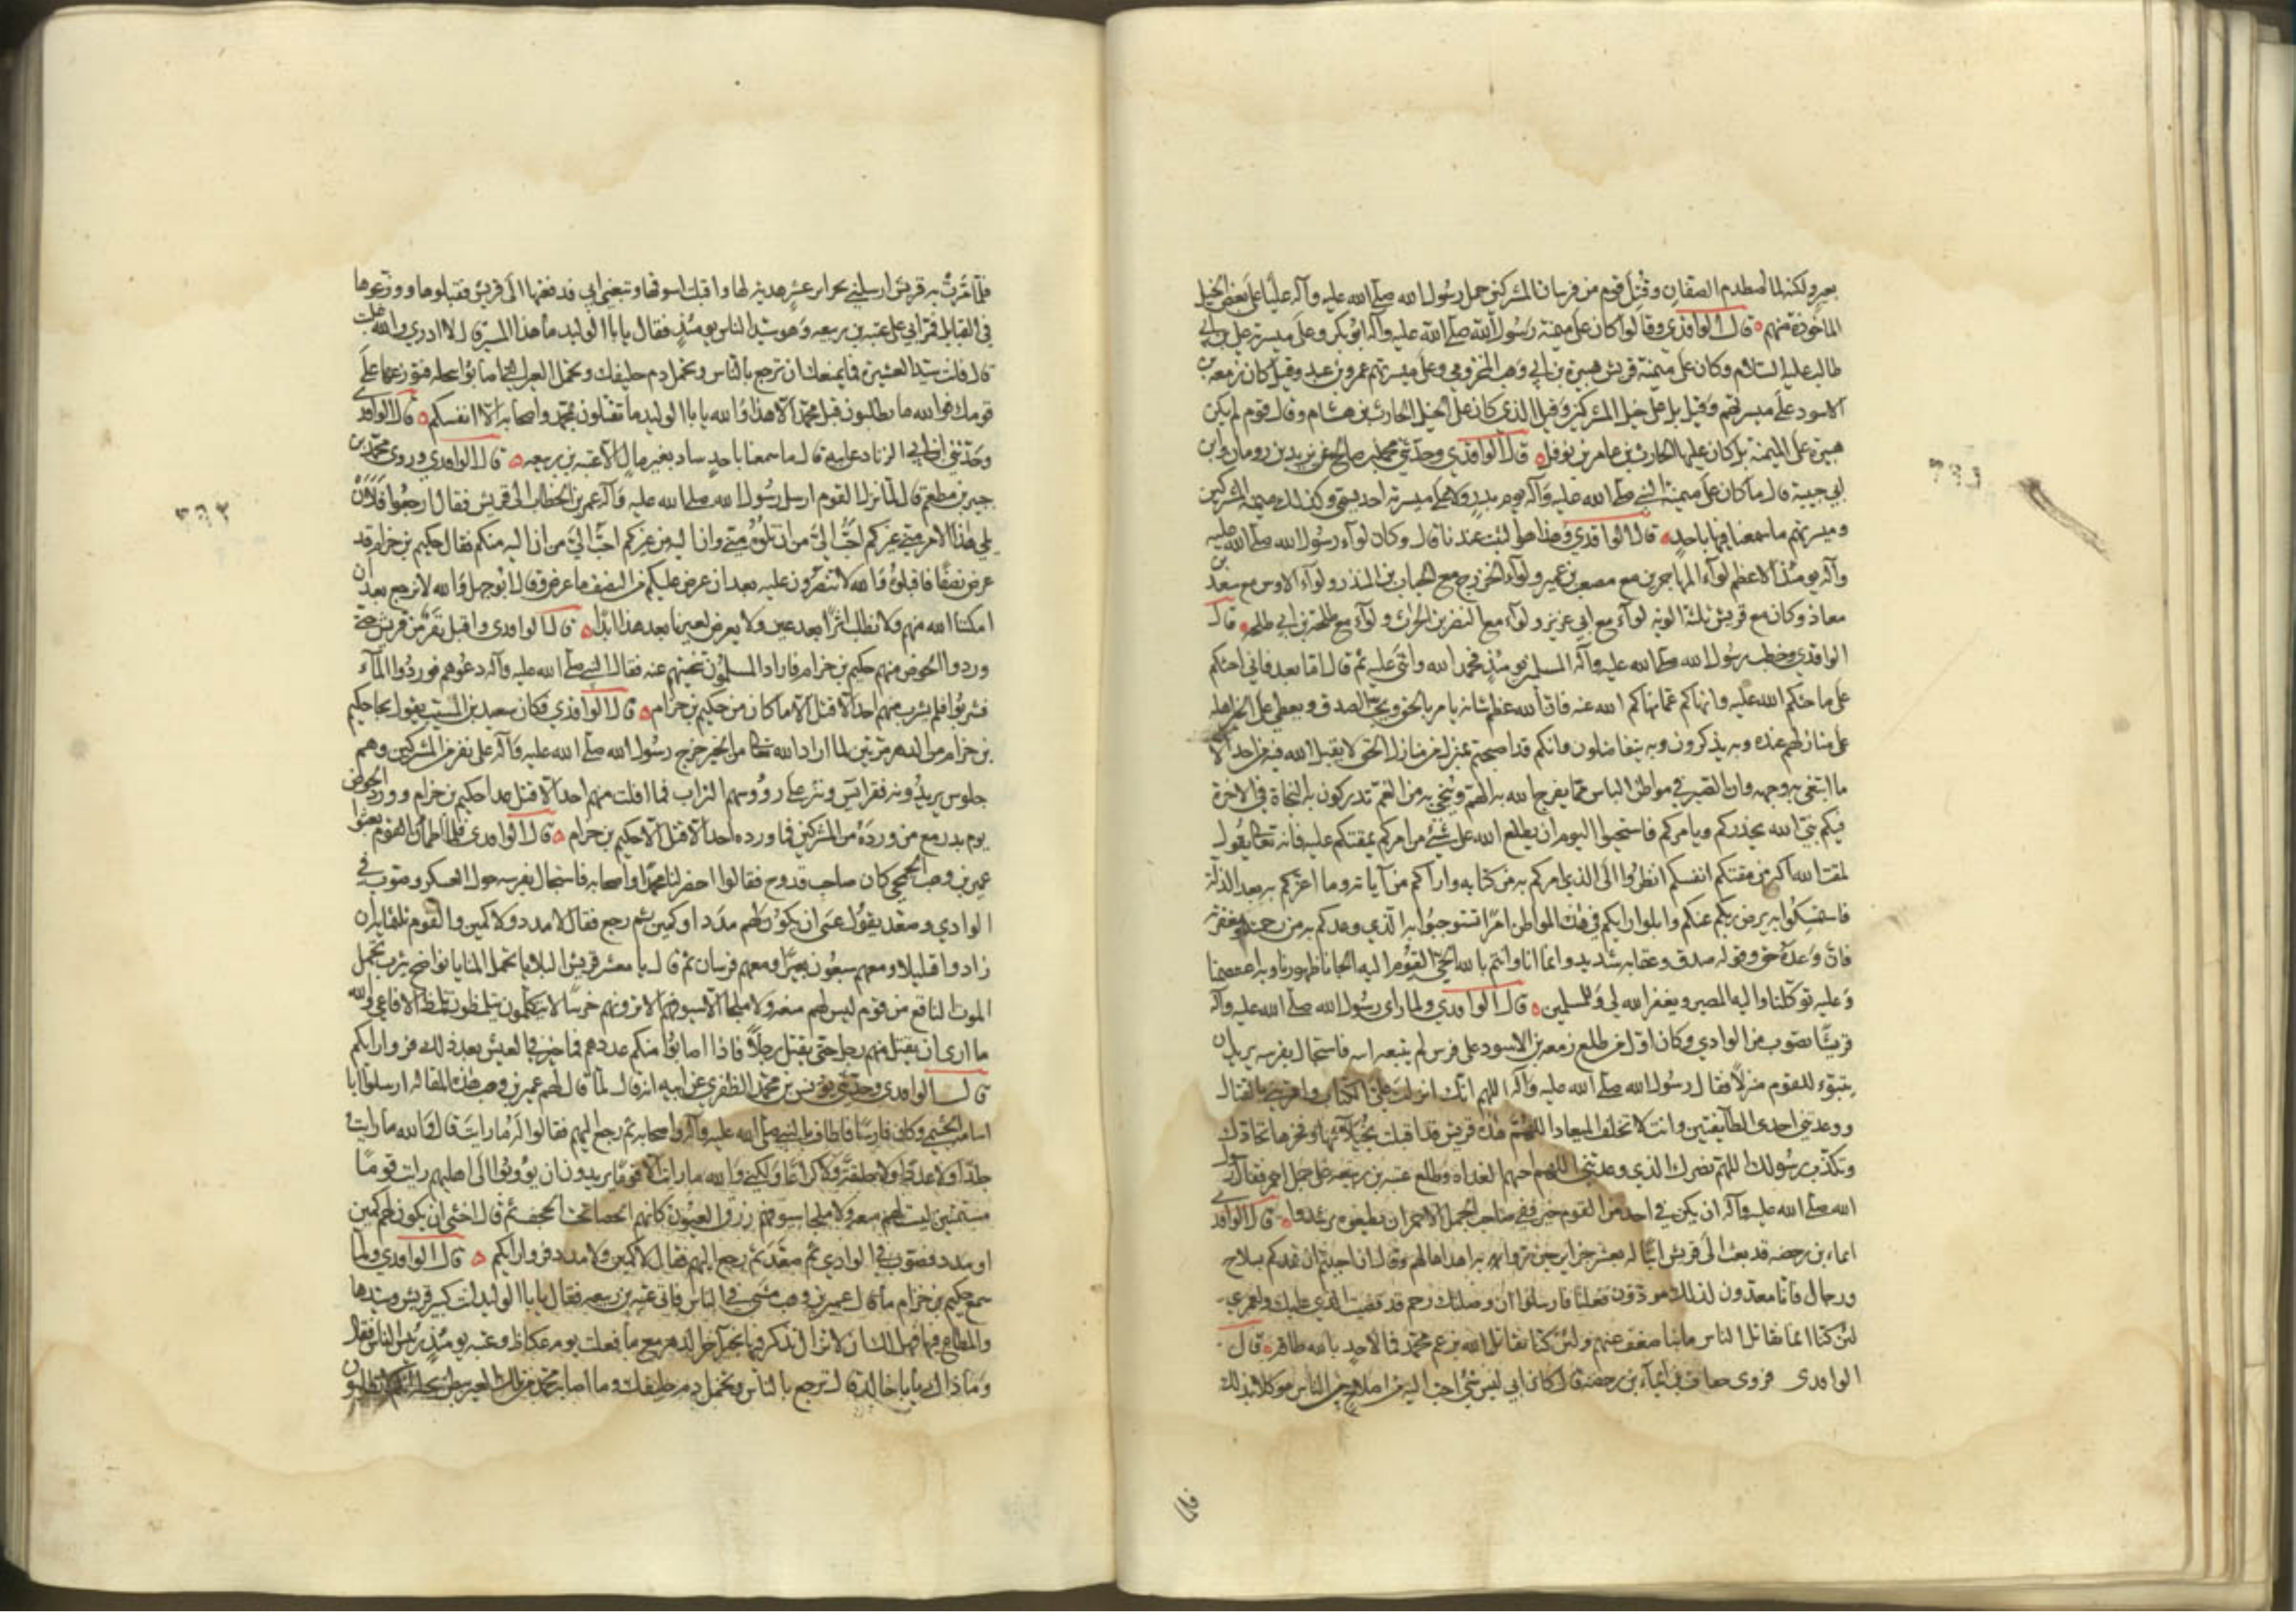 بعير ولكنه لما اصطدم الصفان وقتل قوم من فرسان المشركين حمل رسول الله صلى الله عليه وآله عليا على بعض الخيل
المأخوذة منهم قال الواقدي وقالوا كان على ميمنة رسول الله صلى الله عليه وآله ابو بكر وعلى ميسرته علي بن ابي
طالب عليه السلام وكان على ميمنة قريش هبيرة بن ابي وهب المخزومي وعلى ميسرتهم عمرو بن عبد وقيل كان زمعة بن
الاسود على ميسرتهم وقيل بل على خيل المشركين وقيل الذي كان على الخيل الحارث بن هشام وقال قوم لم يكن
هبيرة على الميمنة بل كان عليها الحارث بن عامر بن نوفل قال الواقدي وحدثني محمد بن صالح عن يزيد بن رومان وابن
ابي حبيبة قال ما كان على ميمنة النبي صلى الله عليه وآله يوم بدر ولا على ميسرته احد يسمى وكذلك ميمنة المشركين
وميسرتهم ما سمعنا فيها باحد قال الواقدي وهذا هو الثبت عندنا قال وكان لواء رسول الله صلى الله عليه
وآله يومئذ الاعظم لواء المهاجرين مع مصعب بن عمير ولواء الخزرج مع الحباب بن المنذر ولواء الاوس مع سعد بن
معاذ وكان مع قريش ثلثة الوية لواء مع ابي عزيز ولواء مع النضر بن الحرث ولواء مع طلحة بن ابي طلحة قال
الواقدي وخطب رسول الله صلى الله عليه وآله المسلمين يومئذ فحمد الله واثنى عليه ثم قال اما بعد فاني احثكم
على ما حثكم الله عليه وانهاكم عما نهاكم الله عنه فان الله عظم شانه يامر بالحق ويحب الصدق ويعطي على الخير اهله
على منازلهم عنده به يذكرون وبه يتفاضلون وانكم قد اصبحتم بمنزل من منازل الحق لا يقبل الله فيه من احد الا
ما ابتغى به وجهه وان الصبر في مواطن الباس مما يفرج الله به الهم وينجي به من الغم تدركون به النجاة في الاخرة
فيكم نبي الله يحذركم ويامركم فاستحيوا اليوم ان يطلع الله على شيء من امركم يمقتكم عليه فانه تعالى يقول
لمقت الله اكبر من مقتكم انفسكم انظروا الى الذي امركم به من كتابه واراكم من آياته وما اعزكم به بعد الذلة
فاستمسكوا به يرض ربكم عنكم وابلوا ربكم في هذه المواطن امرا تستوجبوا به الذي وعدكم به من رحمته ومغفرته
فان وعده حق وقوله صدق وعقابه شديد وانما انا وانتم بالله الحي القيوم اليه الجانا ظهورنا وبه اعتصمنا
وعليه توكلنا واليه المصير ويغفر الله لي وللمسلمين قال الواقدي ولما راى رسول الله صلى الله عليه وآله
قريشا تصوب من الوادي وكان اول من طلع زمعة بن الاسود على فرس له يتبعه ابنه فاستجال بفرسه يريد ان
يتبوء للقوم منزلا فقال رسول الله صلى الله عليه وآله اللهم انك انزلت علي الكتاب وامرتني بالقتال
ووعدتني احدى الطائفتين وانت لا تخلف الميعاد اللهم هذه قريش قد اقبلت بخيلائها وفخرها تحادك
وتكذب رسولك اللهم نصرك الذي وعدتني اللهم احنهم الغداة وطلع عتبة بن ربيعة على جمل احمر فقال رسول
الله صلى الله عليه وآله ان يكن في احد من القوم خير ففي صاحب الجمل الاحمر ان يطيعوه يرشدوا قال الواقدي
ايماء بن رحضة قد بعث الى قريش ابنا له بعشر جزائر حين مروا به اهداها لهم وقال ان احببتم ان نمدكم بسلاح
ورجال فانا معدون لذلك مؤدون فعلنا فارسلوا ان وصلتك رحم قد قضيت الذي عليك ولعمري
لئن كنا انما نقاتل الناس ما بنا ضعف عنهم ولئن كنا نقاتل الله بزعم محمد فما لاحد بالله طاقة قال
الواقدي فروى خفاف بن ايماء بن رحضة قال كان ابي ليس شيء احب اليه من اصلاح بين الناس موكلا بذلك
فلما
فلما مرت به قريش ارسلني بجزائر عشر هدية لها واقبلت اسوقها وتبعني ابي فدفعتها الى قريش فقبلوها ووزعوها
في القبايل فمر ابي على عتبة بن ربيعة وهو سيد الناس يومئذ فقال يا ابا الوليد ما هذا المسير قال لا ادري والله غلبت
قال فانت سيد العشيرة فما يمنعك ان ترجع بالناس وتحمل دم حليفك وتحمل العير التي اصابوا بنخلة فتوزعها على
قومك فوالله ما يطلبون قبل محمد الا هذا والله يا ابا الوليد ما تقتلون بمحمد واصحابه الا انفسكم قال الواقدي
وحدثني ابن ابي الزناد عن ابيه قال ما سمعنا باحد ساد بغير مال الا عتبة بن ربيعة قال الواقدي وروى محمد بن
جبير بن مطعم قال لما نزل القوم ارسل رسول الله صلى الله عليه وآله عمر بن الخطاب الى قريش فقال ارجعوا فلان
يلي هذا الامر مني غيركم احب الي من ان تلوه مني وان اليه من غيركم احب الي من ان اليه منكم فقال حكيم بن حزام قد
عرض نصفا فاقبلوه فوالله لا تنصرون عليه بعد ان عرض عليكم من النصف ما عرض وقال ابو جهل والله لا نرجع بعد ان
امكننا الله منهم ولا نطلب اثرا بعد عين ولا يعرض لعيرنا بعد هذا ابدا قال الواقدي واقبل نفر من قريش حتى
وردوا الحوض منهم حكيم بن حزام فاراد المسلمون تنحيتهم عنه فقال النبي صلى الله عليه وآله دعوهم فوردوا الماء
فشربوا فلم يشرب منهم احد الا قتل الا ما كان من حكيم بن حزام قال الواقدي فكان سعيد بن المسيب يقول نجا حكيم
بن حزام من الدهر مرتين لما اراد الله تعالى من الخير خرج رسول الله صلى الله عليه وآله على نفر من المشركين وهم
جلوس يريدونه فقرا يس ونثر على رؤوسهم التراب فما افلت منهم احد الا قتل عدا حكيم بن حزام وورد الحوض
يوم بدر مع من ورده من المشركين فما ورده احد الا قتل الا حكيم بن حزام قال الواقدي فلما اطمأن القوم بعثوا
عمير بن وهب الجمحي كان صاحب قدوح فقالوا احزر لنا محمدا واصحابه فاستجال بفرسه حول العسكر وصوب في
الوادي وصعد يقول عسى ان يكون لهم مدد او كمين ثم رجع فقال لا مدد ولا كمين والقوم ثلثمائة ان
زادوا قليلا ومعهم سبعون بعيرا ومعهم فرسان ثم قال يا معشر قريش البلايا تحمل المنايا نواضح يثرب تحمل
الموت الناقع من قوم ليس لهم منعة ولا ملجأ الا سيوفهم الا ترونهم خرسا لا يتكلمون يتلمظون تلمظ الافاعي والله
ما ارى ان يقتل منهم رجل حتى يقتل رجلا فاذا اصابوا منكم عددهم فما خير في العيش بعد ذلك فروا رايكم
قال الواقدي وحدثني يونس بن محمد الظفري عن ابيه انه قال لما قال لهم عمير بن وهب هذه المقالة ارسلوا ابا
اسامة الجشمي وكان فارسا فاطاف بالنبي صلى الله عليه وآله واصحابه ثم رجع اليهم فقالوا له ما رايت قال والله ما رايت
جلدا ولا عددا ولا حلقة ولا كراعا ولكني والله رايت قوما لا يريدون ان يؤوبوا الى اهليهم رايت قوما
مستميتين ليست لهم منعة ولا ملجأ الا سيوفهم زرق العيون كانهم الحصا تحت الحجف ثم قال اخشى ان يكون لهم كمين
او مدد فصوب في الوادي ثم صعد ثم رجع اليهم فقال لا كمين ولا مدد فروا رايكم قال الواقدي ولما
سمع حكيم بن حزام ما قال عمير بن وهب مشى في الناس فاتى عتبة بن ربيعة فقال يا ابا الوليد انت كبير قريش وسيدها
والمطاع فيها فهل لك ان لا تزال تذكر فيها بخير آخر الدهر مع ما فعلت يوم عكاظ وعتبة يومئذ رئيس الناس فقال
وما ذاك يا ابا خالد قال ترجع بالناس وتحمل دم حليفك وما اصابه محمد من تلك العير ببطن نخلة انكم لا تطلبون